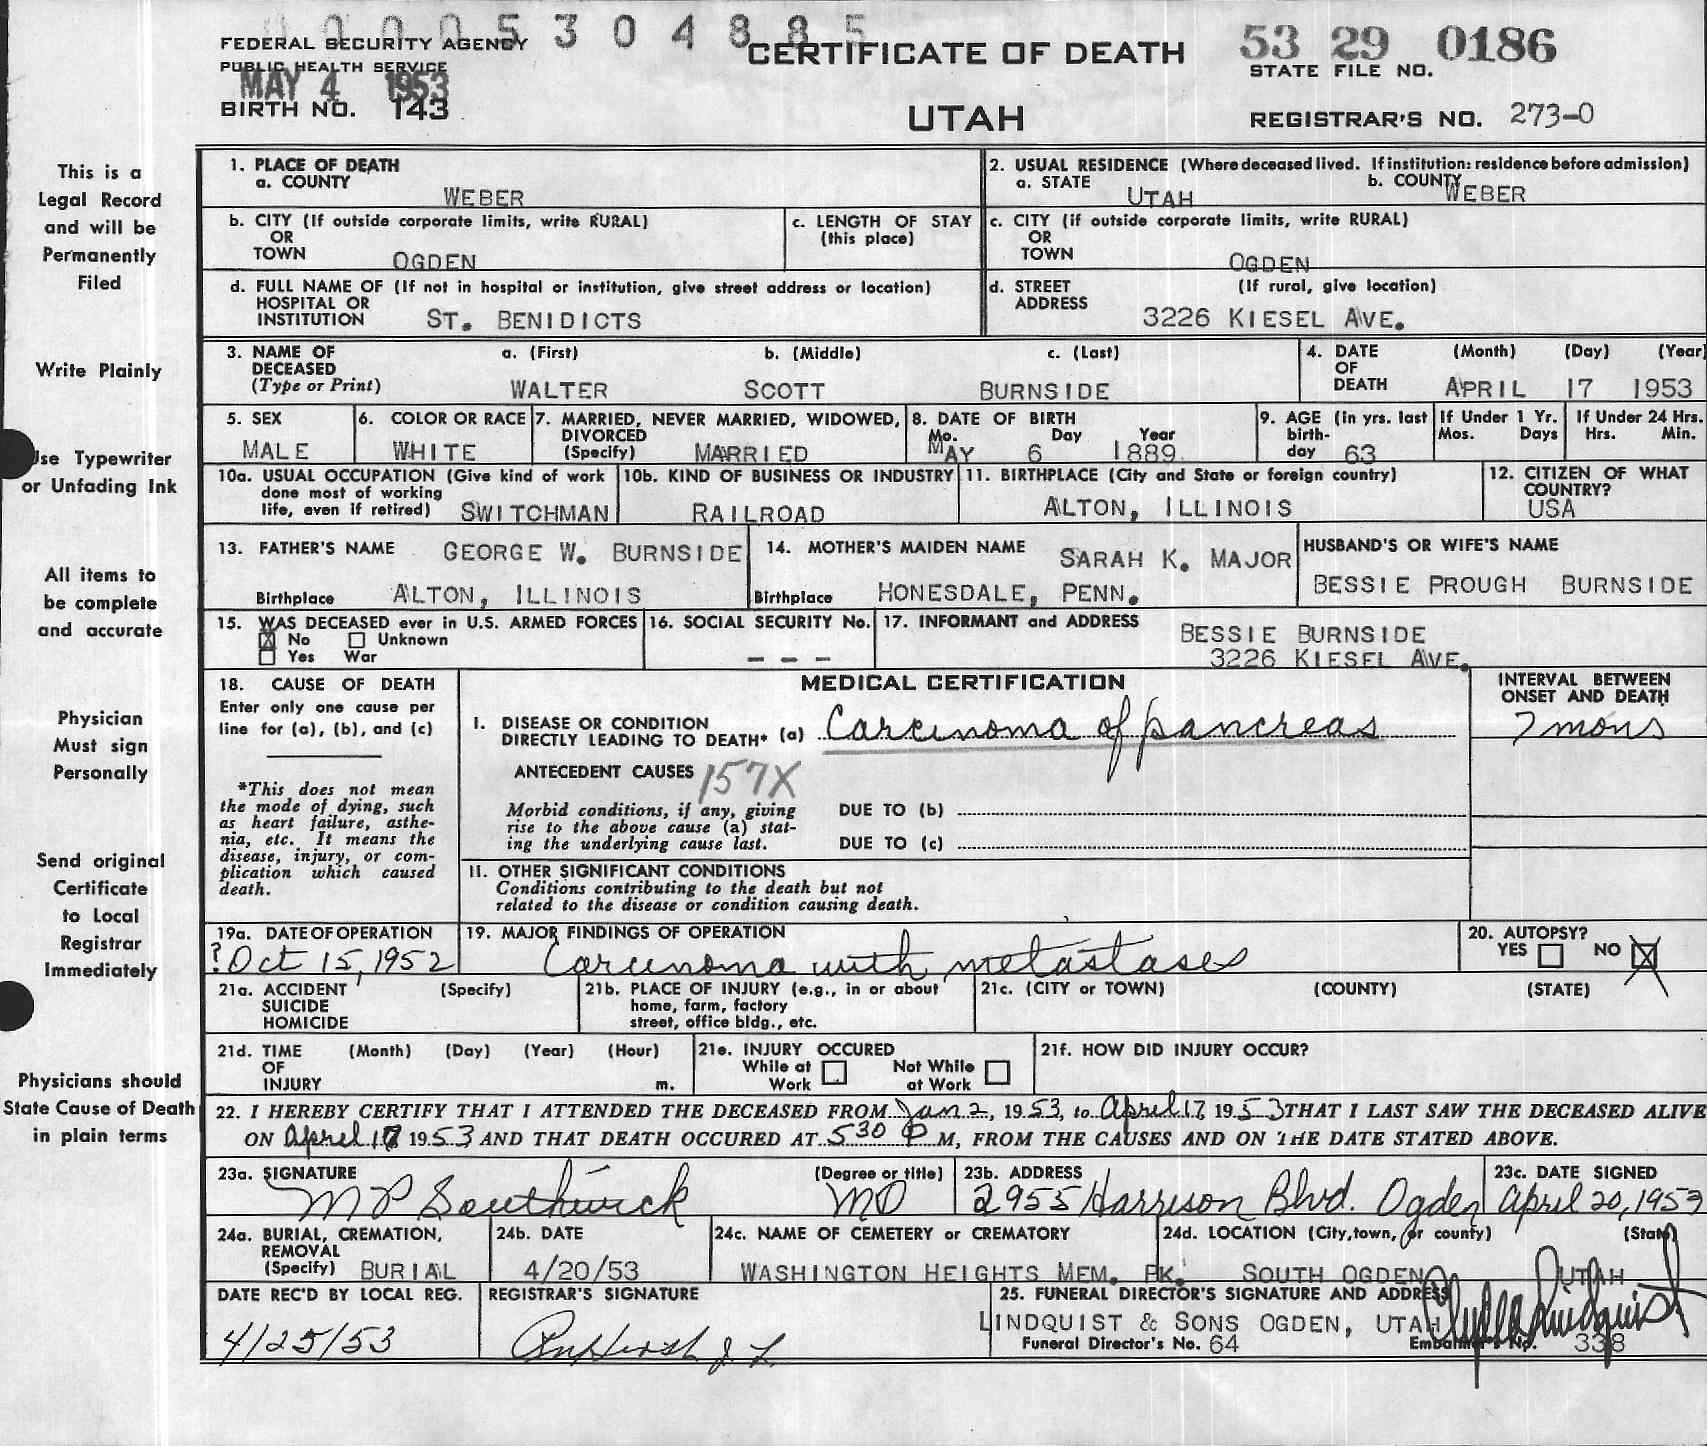 0 0 0 5 3 0 4 8 8 5
FEDERAL SECURITY AGENCY
PUBLIC HEALTH SERVICE
MAY 4 1953
BIRTH NO. 143
CERTIFICATE OF DEATH
UTAH
53 29 0186
STATE FILE NO.
REGISTRAR'S NO. 273-0
This is a
Legal Record
and will be
Permanently
Filed
Write Plainly
Use Typewriter
or Unfading Ink
All items to
be complete
and accurate
Physician
Must sign
Personally
Send original
Certificate
to Local
Registrar
Immediately
Physicians should
State Cause of Death
in plain terms
1. PLACE OF DEATH
a. COUNTY WEBER
2. USUAL RESIDENCE (Where deceased lived. If institution: residence before admission)
a. STATE UTAH b. COUNTY WEBER
b. CITY (If outside corporate limits, write RURAL)
OR
TOWN OGDEN
c. LENGTH OF STAY
(this place)
c. CITY (if outside corporate limits, write RURAL)
OR
TOWN OGDEN
d. FULL NAME OF (If not in hospital or institution, give street address or location)
HOSPITAL OR
INSTITUTION ST. BENIDICTS
d. STREET (If rural, give location)
ADDRESS
3226 KIESEL AVE.
3. NAME OF a. (First) b. (Middle) c. (Last)
DECEASED
(Type or Print) WALTER SCOTT BURNSIDE
4. DATE (Month) (Day) (Year)
OF
DEATH APRIL 17 1953
5. SEX
MALE
6. COLOR OR RACE
WHITE
7. MARRIED, NEVER MARRIED, WIDOWED,
DIVORCED
(Specify) MARRIED
8. DATE OF BIRTH
Mo. Day Year
MAY 6 1889
9. AGE (in yrs. last
birth-
day 63
If Under 1 Yr.
Mos. Days
If Under 24 Hrs.
Hrs. Min.
10a. USUAL OCCUPATION (Give kind of work
done most of working
life, even if retired) SWITCHMAN
10b. KIND OF BUSINESS OR INDUSTRY
RAILROAD
11. BIRTHPLACE (City and State or foreign country)
ALTON, ILLINOIS
12. CITIZEN OF WHAT
COUNTRY?
USA
13. FATHER'S NAME GEORGE W. BURNSIDE
Birthplace ALTON, ILLINOIS
14. MOTHER'S MAIDEN NAME SARAH K. MAJOR
Birthplace HONESDALE, PENN.
HUSBAND'S OR WIFE'S NAME
BESSIE PROUGH BURNSIDE
15. WAS DECEASED ever in U.S. ARMED FORCES
No Unknown
Yes War
16. SOCIAL SECURITY No.
- - -
17. INFORMANT and ADDRESS BESSIE BURNSIDE
3226 KIESEL AVE.
18. CAUSE OF DEATH
Enter only one cause per
line for (a), (b), and (c)
*This does not mean
the mode of dying, such
as heart failure, asthe-
nia, etc. It means the
disease, injury, or com-
plication which caused
death.
MEDICAL CERTIFICATION
INTERVAL BETWEEN
ONSET AND DEATH
I. DISEASE OR CONDITION
DIRECTLY LEADING TO DEATH* (a) Carcinoma of pancreas 7 mons
ANTECEDENT CAUSES 157X
Morbid conditions, if any, giving
rise to the above cause (a) stat-
ing the underlying cause last.
DUE TO (b)
DUE TO (c)
II. OTHER SIGNIFICANT CONDITIONS
Conditions contributing to the death but not
related to the disease or condition causing death.
19a. DATE OF OPERATION
? Oct 15, 1952
19. MAJOR FINDINGS OF OPERATION
Carcinoma with metastases
20. AUTOPSY?
YES NO
21a. ACCIDENT (Specify)
SUICIDE
HOMICIDE
21b. PLACE OF INJURY (e.g., in or about
home, farm, factory
street, office bldg., etc.
21c. (CITY or TOWN) (COUNTY) (STATE)
21d. TIME (Month) (Day) (Year) (Hour)
OF
INJURY m.
21e. INJURY OCCURED
While at Work Not While at Work
21f. HOW DID INJURY OCCUR?
22. I HEREBY CERTIFY THAT I ATTENDED THE DECEASED FROM Jan 2, 1953, to April 17 1953 THAT I LAST SAW THE DECEASED ALIVE
ON April 17 1953 AND THAT DEATH OCCURED AT 530 P M, FROM THE CAUSES AND ON THE DATE STATED ABOVE.
23a. SIGNATURE (Degree or title)
M P Southwick MD
23b. ADDRESS
2955 Harrison Blvd. Ogden
23c. DATE SIGNED
April 20, 1953
24a. BURIAL, CREMATION,
REMOVAL
(Specify) BURIAL
24b. DATE
4/20/53
24c. NAME OF CEMETERY or CREMATORY
WASHINGTON HEIGHTS MEM. PK.
24d. LOCATION (City, town, or county) (State)
SOUTH OGDEN UTAH
DATE REC'D BY LOCAL REG.
4/25/53
REGISTRAR'S SIGNATURE
25. FUNERAL DIRECTOR'S SIGNATURE AND ADDRESS
LINDQUIST & SONS OGDEN, UTAH
Funeral Director's No. 64 Embalmer's No. 338